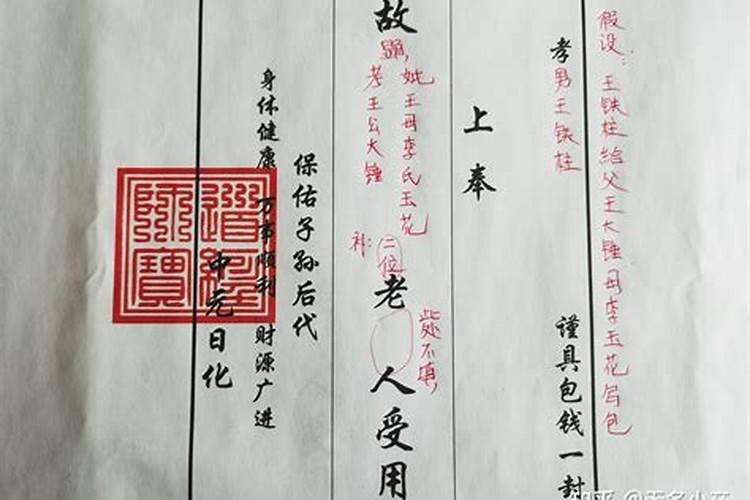 假设：王铁柱给父王大锤母李玉花写包
孝男王铁柱 谨具包钱一封
上奉
故
显,
妣王母李氏玉花
考王公大锤
补：二位
老人受用
此处不填,
保佑子孙后代
身体健康 万事顺利 财源广进
中元日化
道经师宝
知乎